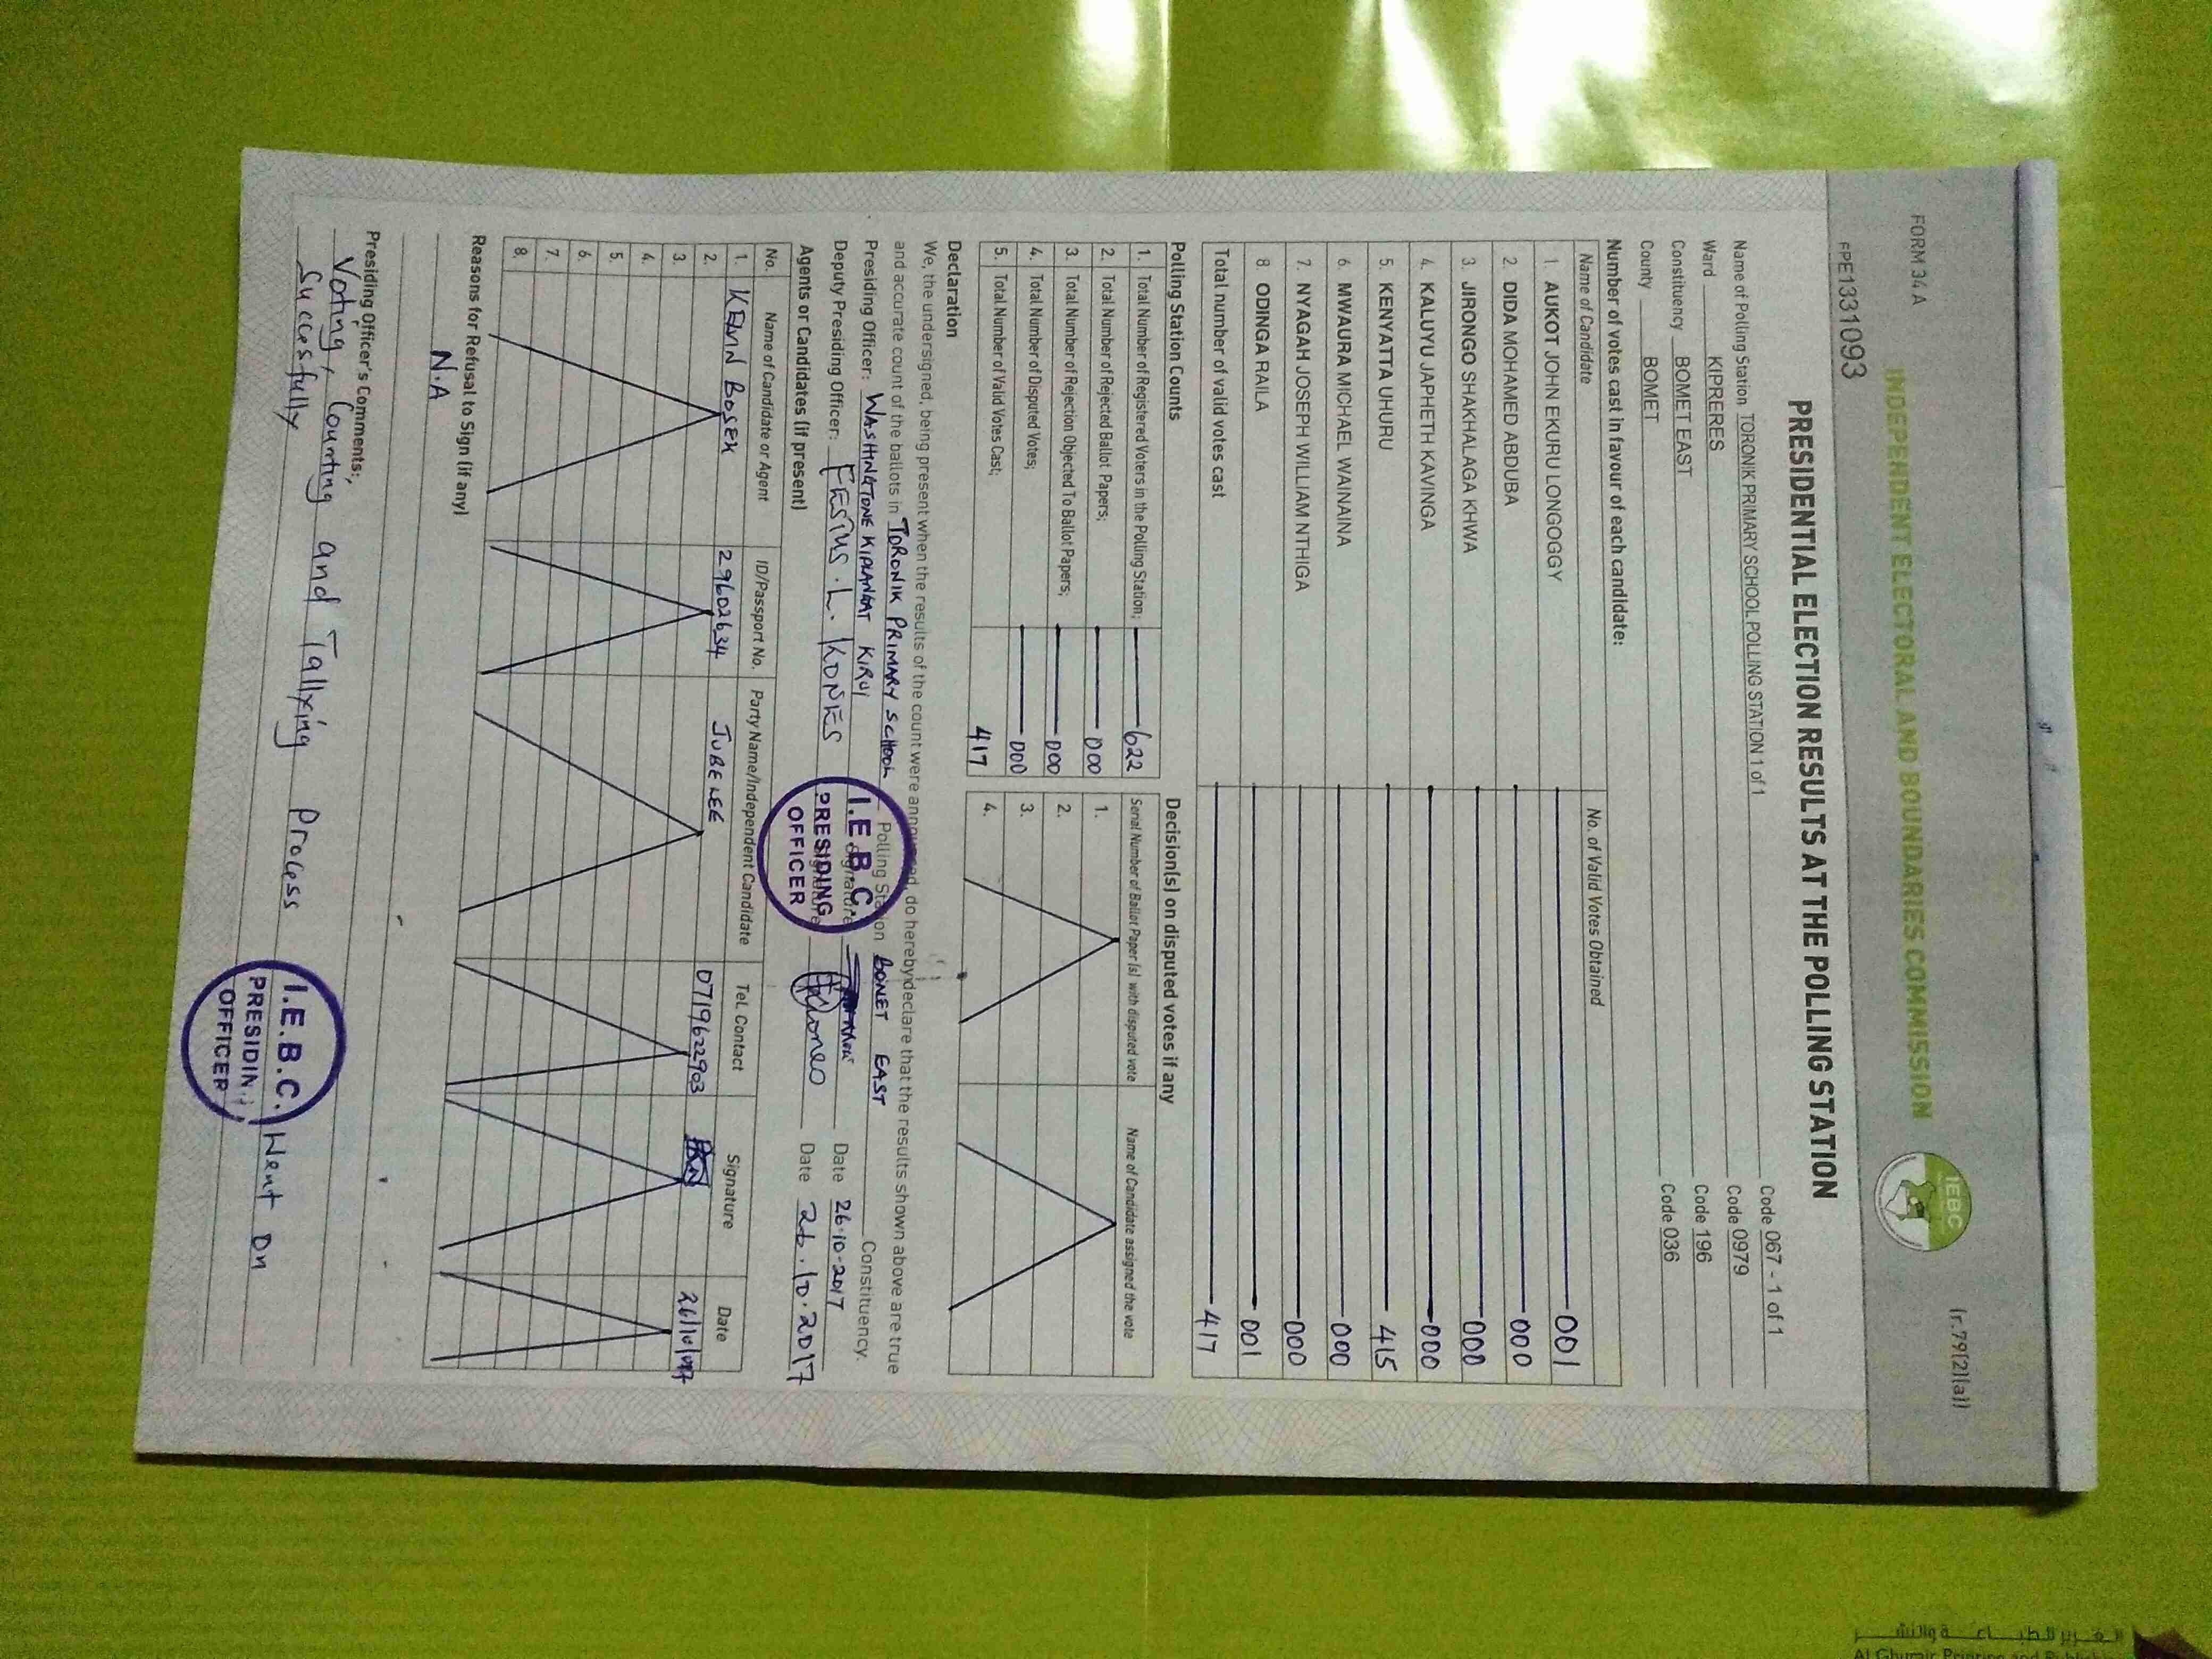 FORM 34A
(r.79(2)(a))
INDEPENDENT ELECTORAL AND BOUNDARIES COMMISSION
IEBC
FPE1331093
PRESIDENTIAL ELECTION RESULTS AT THE POLLING STATION
Name of Polling Station TORONIK PRIMARY SCHOOL POLLING STATION 1 of 1 Code 067 - 1 of 1
Ward KIPRERES Code 0979
Constituency BOMET EAST Code 196
County BOMET Code 036
Number of votes cast in favour of each candidate:
Name of Candidate No. of Valid Votes Obtained
1. AUKOT JOHN EKURU LONGOGGY 001
2. DIDA MOHAMED ABDUBA 000
3. JIRONGO SHAKHALAGA KHWA 000
4. KALUYU JAPHETH KAVINGA 000
5. KENYATTA UHURU 415
6. MWAURA MICHAEL WAINAINA 000
7. NYAGAH JOSEPH WILLIAM NTHIGA 000
8 ODINGA RAILA 001
Total number of valid votes cast 417
Polling Station Counts
1. Total Number of Registered Voters in the Polling Station; 622
2. Total Number of Rejected Ballot Papers; 000
3. Total Number of Rejection Objected To Ballot Papers; 000
4. Total Number of Disputed Votes; 000
5. Total Number of Valid Votes Cast; 417
Decision(s) on disputed votes if any
Serial Number of Ballot Paper (s) with disputed vote Name of Candidate assigned the vote
1.
2.
3.
4.
Declaration
We, the undersigned, being present when the results of the count were announced, do hereby declare that the results shown above are true
and accurate count of the ballots in TORONIK PRIMARY SCHOOL Polling Station BOMET EAST Constituency.
Presiding Officer: WASHINGTONE KIPLANGAT KIRUI Signature Date 26.10.2017
Deputy Presiding Officer: FESTUS. L. KONES Signature Date 26.10.2017
I.E.B.C.
PRESIDING
OFFICER
Agents or Candidates (if present)
No. Name of Candidate or Agent ID/Passport No. Party Name/Independent Candidate Tel. Contact Signature Date
1. KEVIN BOSEK 29602634 JUBELEE 0719622903
2.
3.
4.
5.
6.
7.
8.
Reasons for Refusal to Sign (if any)
N.A
Presiding Officer's Comments:
Voting, Counting and Tallying Process Went On
Succesfully
I.E.B.C.
PRESIDING
OFFICER